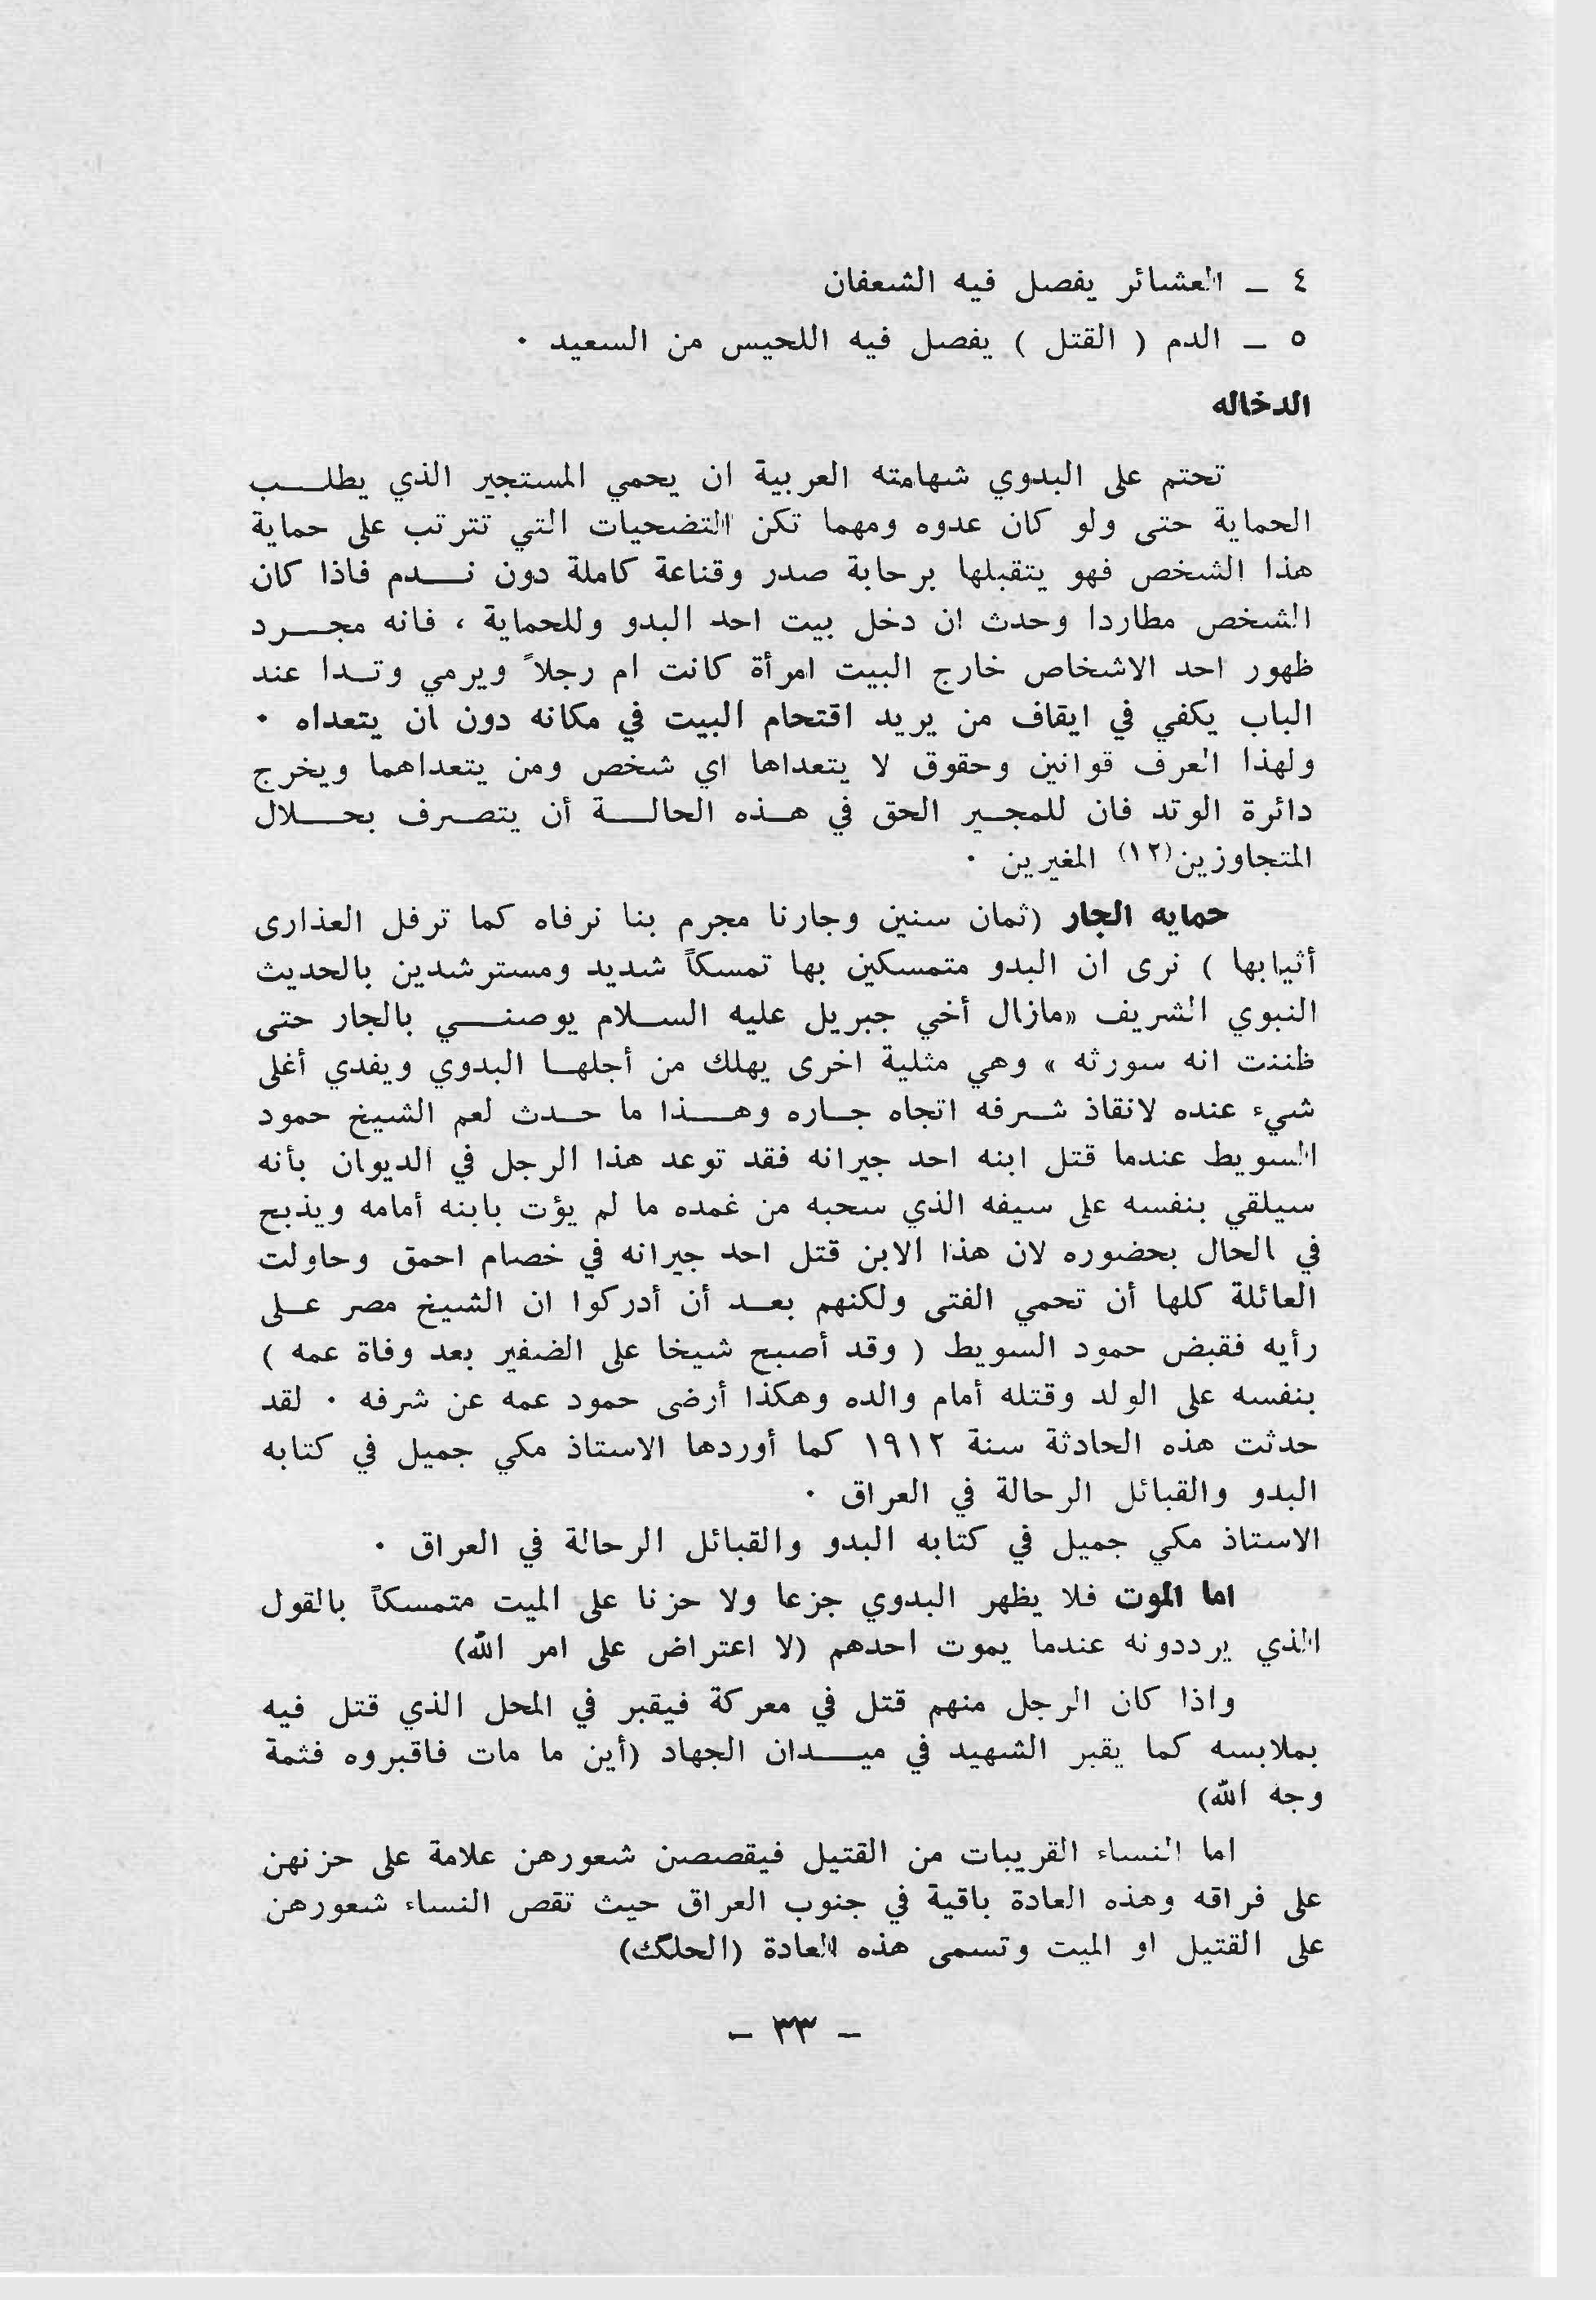 ٤ ــ العشائر يفصل فيه الشعفان
٥ ــ الدم ( القتل ) يفصل فيه اللحيس من السعيد ٠
الدخاله
تحتم على البدوي شهامته العربية ان يحمي المستجير الذي يطلب
الحماية حتى ولو كان عدوه ومهما تكن التضحيات التي تترتب على حماية
هذا الشخص فهو يتقبلها برحابة صدر وقناعة كاملة دون ندم فاذا كان
الشخص مطاردا وحدث ان دخل بيت احد البدو وللحماية ، فانه مجرد
ظهور احد الاشخاص خارج البيت امرأة كانت ام رجلاً ويرمي وتدا عند
الباب يكفي في ايقاف من يريد اقتحام البيت في مكانه دون ان يتعداه ٠
ولهذا العرف قوانين وحقوق لا يتعداها اي شخص ومن يتعداهما ويخرج
دائرة الوتد فان للمجير الحق في هذه الحالة أن يتصرف بحلال
المتجاوزين(١٢) المغيرين ٠
حمايه الجار (ثمان سنين وجارنا مجرم بنا نرفاه كما ترفل العذارى
أثيابها ) نرى ان البدو متمسكين بها تمسكاً شديد ومسترشدين بالحديث
النبوي الشريف «مازال أخي جبريل عليه السلام يوصني بالجار حتى
ظننت انه سورثه » وهي مثلية اخرى يهلك من أجلها البدوي ويفدي أغلى
شيء عنده لانقاذ شرفه اتجاه جاره وهذا ما حدث لعم الشيخ حمود
السويط عندما قتل ابنه احد جيرانه فقد توعد هذا الرجل في الديوان بأنه
سيلقي بنفسه على سيفه الذي سحبه من غمده ما لم يؤت بابنه أمامه ويذبح
في الحال بحضوره لان هذا الابن قتل احد جيرانه في خصام احمق وحاولت
العائلة كلها أن تحمي الفتى ولكنهم بعد أن أدركوا ان الشيخ مصر على
رأيه فقبض حمود السويط ( وقد أصبح شيخا على الضفير بعد وفاة عمه )
بنفسه على الولد وقتله أمام والده وهكذا أرضى حمود عمه عن شرفه ٠ لقد
حدثت هذه الحادثة سنة ١٩١٢ كما أوردها الاستاذ مكي جميل في كتابه
البدو والقبائل الرحالة في العراق ٠
الاستاذ مكي جميل في كتابه البدو والقبائل الرحالة في العراق ٠
اما الموت فلا يظهر البدوي جزعا ولا حزنا على الميت متمسكاً بالقول
الذي يرددونه عندما يموت احدهم (لا اعتراض على امر الله)
واذا كان الرجل منهم قتل في معركة فيقبر في المحل الذي قتل فيه
بملابسه كما يقبر الشهيد في ميدان الجهاد (أين ما مات فاقبروه فثمة
وجه الله)
اما النساء القريبات من القتيل فيقصصن شعورهن علامة على حزنهن
على فراقه وهذه العادة باقية في جنوب العراق حيث تقص النساء شعورهن
على القتيل او الميت وتسمى هذه العادة (الحلگك)
– ٣٣ –